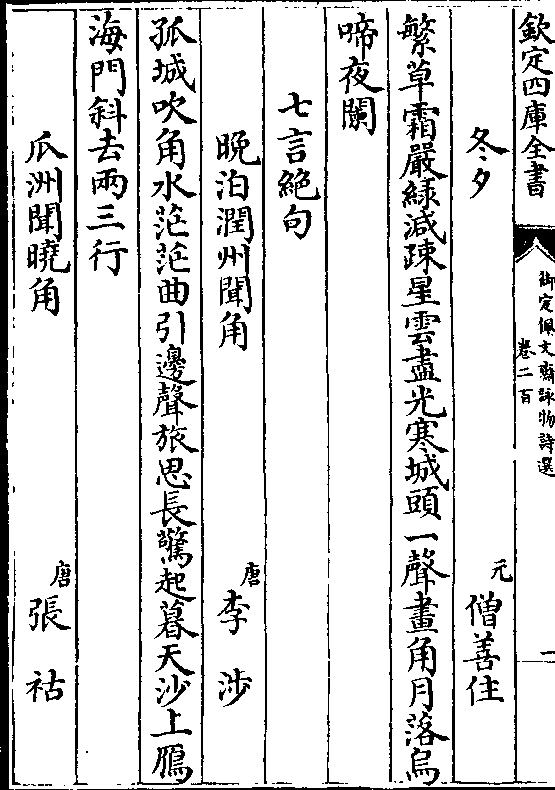 欽定四庫全書
御定佩文齋詠物詩選
卷二百
一
冬夕
元 僧善住
繁草霜嚴緑減疎星雲盡光寒城頭一聲畫角月落烏
啼夜闌
七言絶句
晚泊潤州聞角
唐 李涉
孤城吹角水茫茫曲引邊聲旅思長驚起暮天沙上鴈
海門斜去兩三行
瓜洲聞曉角
唐 張祜